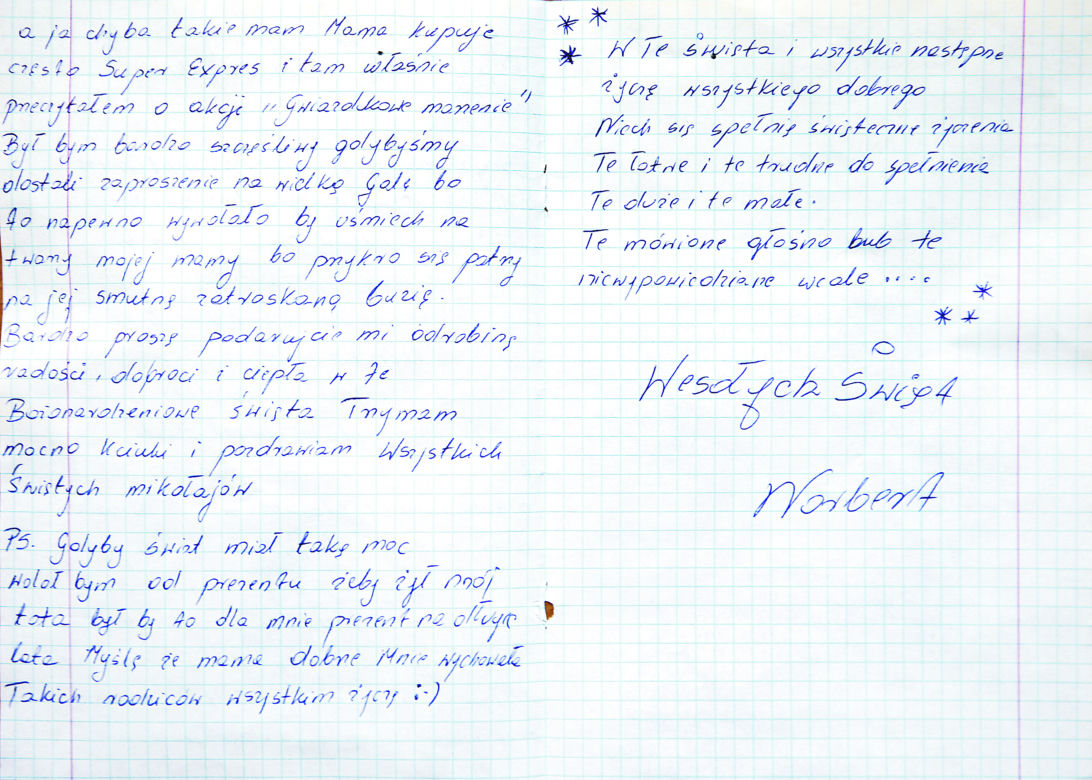 a ja chyba takie mam Mama kupuje
często Super Expres i tam właśnie
przeczytałem o akcji "Gwiazdkowe marzenie"
Był bym bardzo szczęśliwy gdybyśmy
dostali zaproszenie na wielką Galę bo
to napewno wywołało by uśmiech na
twarzy mojej mamy bo przykro się patrzy
na jej smutną zatroskaną buzię.
Bardzo proszę podarujcie mi odrobinę
radości, dobroci i ciepła w te
Bożonarodzeniowe święta Trzymam
mocno kciuki i pozdrawiam Wszystkich
Świętych mikołajów
PS. Gdyby świat miał taką moc
wolał bym od prezentu żeby żył mój
tata był by to dla mnie prezent na długie
lata Myślę że mama dobrze Mnie wychowała
Takich rodziców wszystkim życzę :-)
W Te święta i wszystkie następne
życzę wszystkiego dobrego
Niech się spełnią świąteczne życzenia
Te łatwe i te trudne do spełnienia
Te duże i te małe.
Te mówione głośno bub te
niewypowiedziane wcale ....
Wesołych Świąt
Norbert